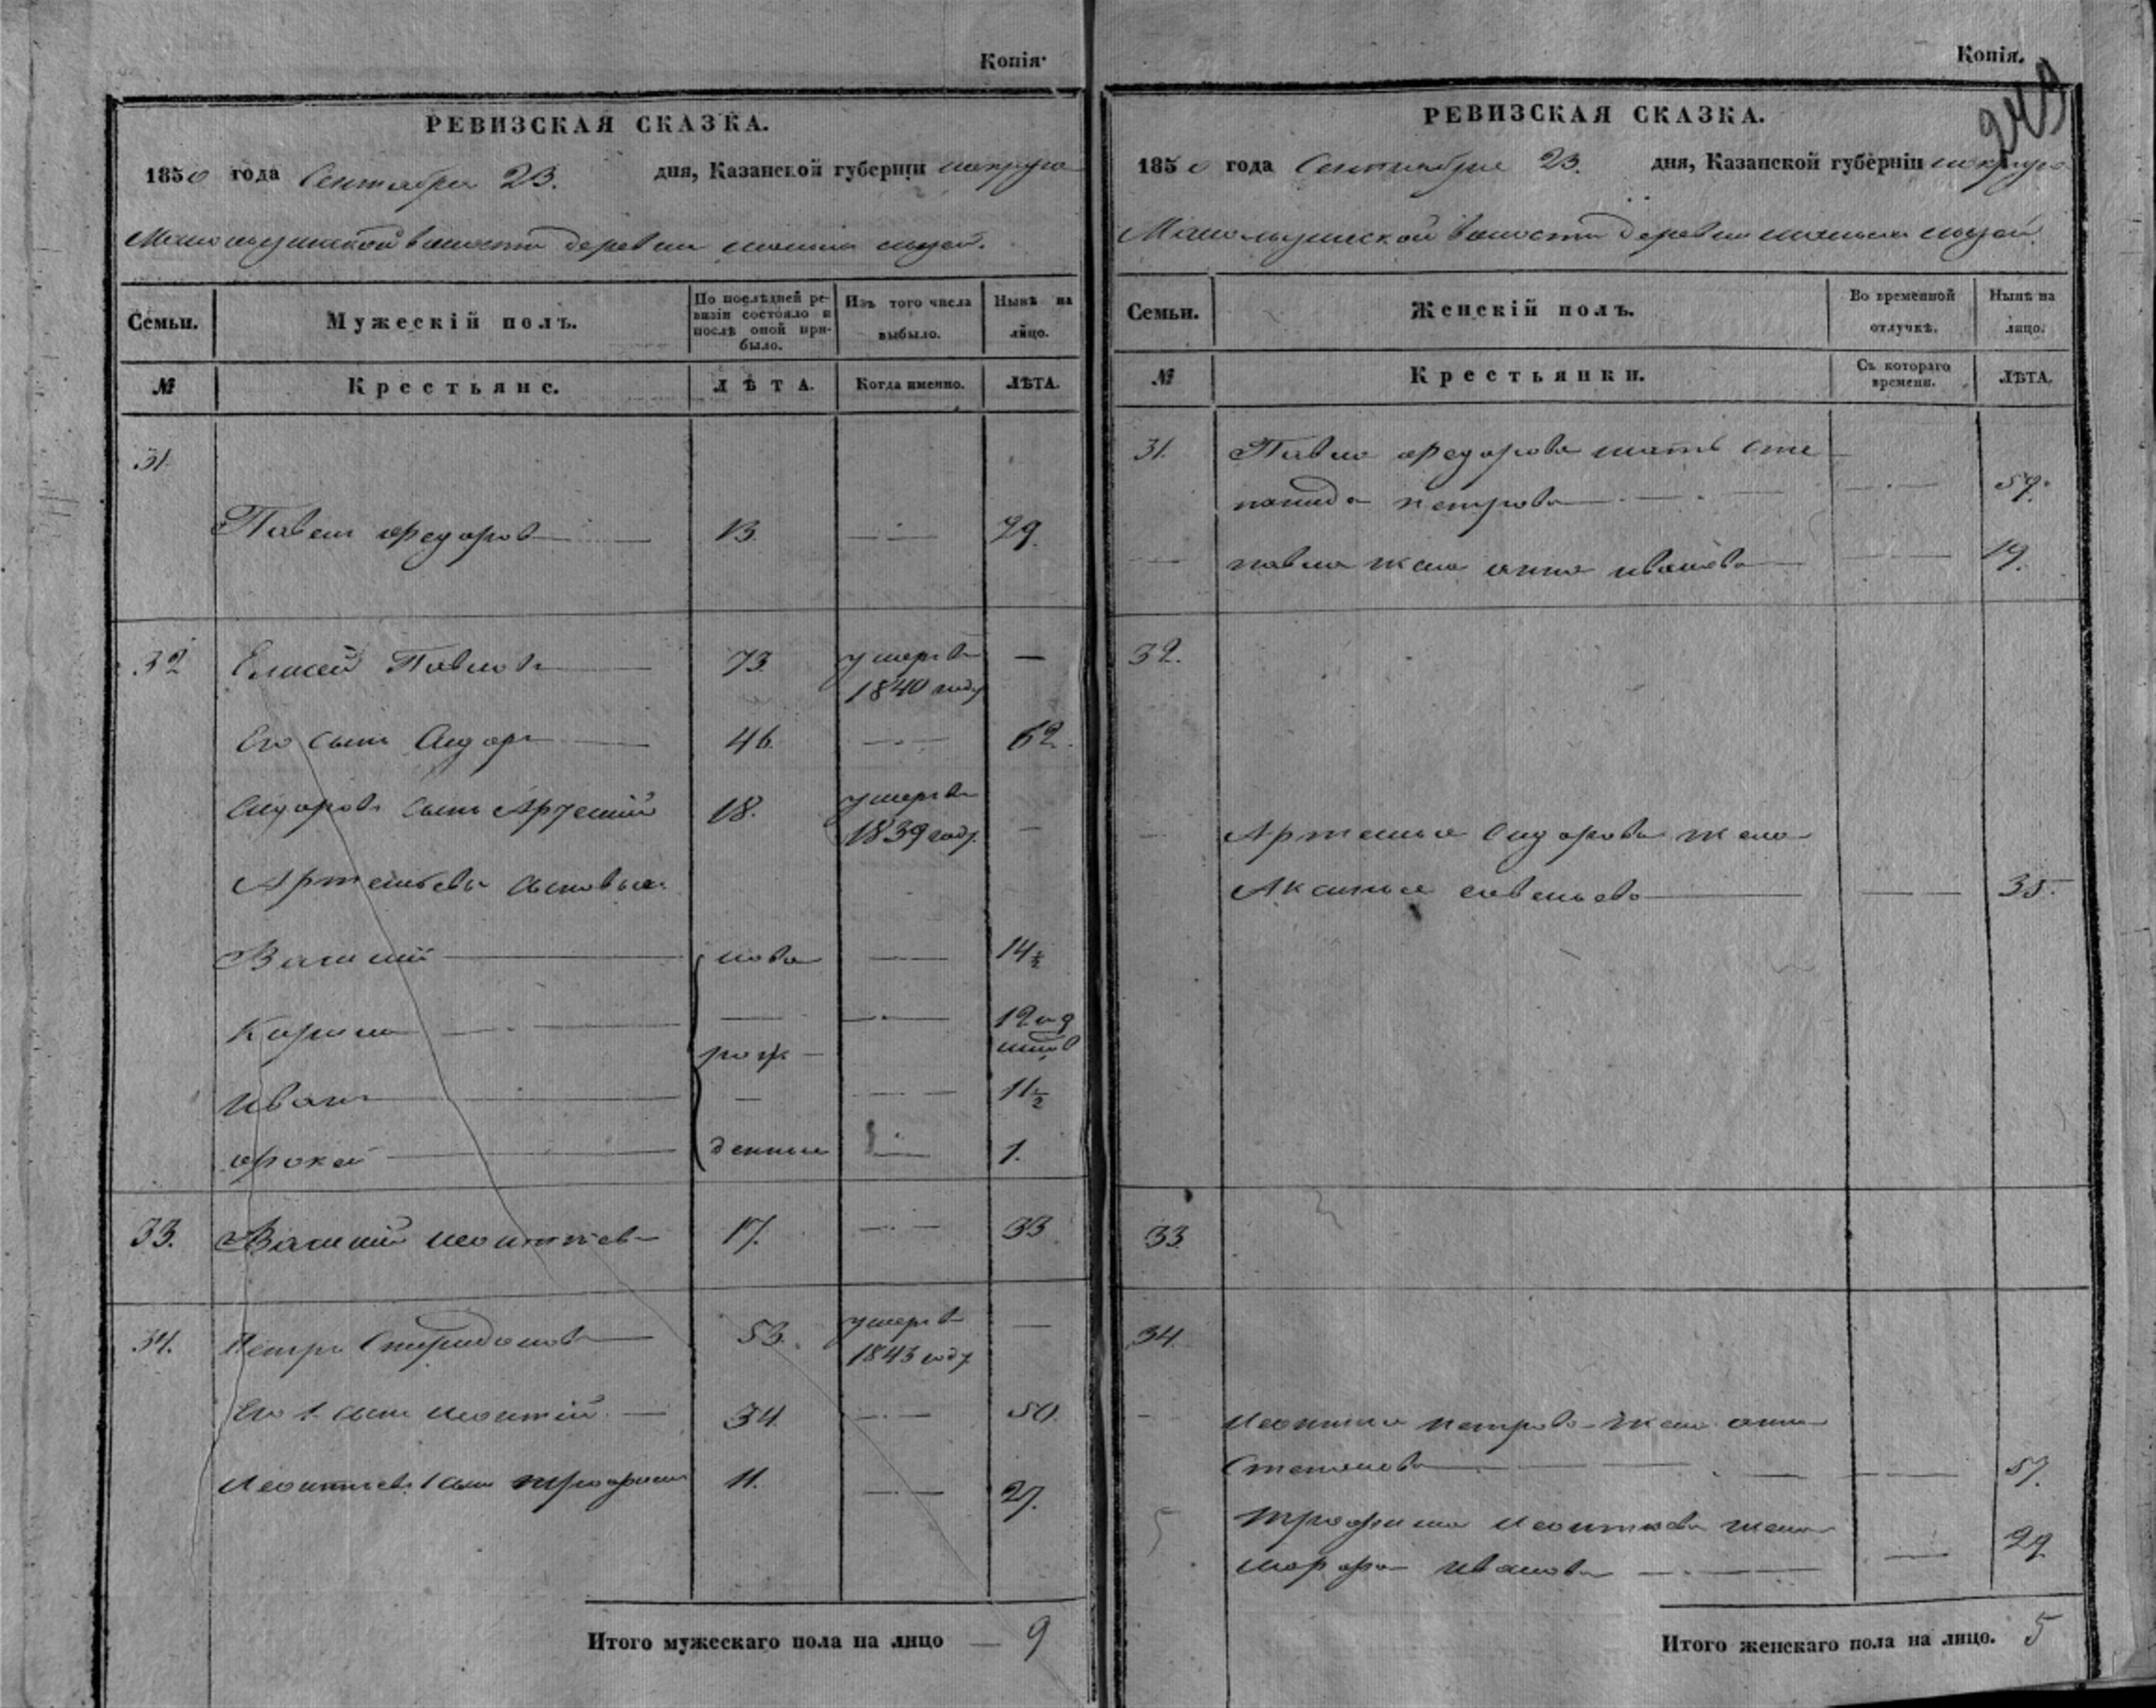 Копія.
РЕВИЗСКАЯ СКАЗКА.
1850 года Сентября 23. дня, Казанской губерніи
волости деревни
Семьи.
Мужескій полъ.
По послѣдней ре-
визіи состояло и
послѣ оной при-
было.
Изъ того числа
выбыло.
Нынѣ на
лицо.
№
Крестьяне.
ЛѢТА.
Когда именно.
ЛѢТА.
31.
Павелъ Федоровъ 13. 29.
32 Елисей Павловъ 73. умеръ въ —
1840 году
Его сынъ Сидоръ 46. 62.
Сидоровъ сынъ Артемій 18. умеръ въ —
1839 году.
Артемьевы сыновья
Василий ново 14½
Карило 12 и 9
рож
Иванъ — 11½
Фокей денные 1.
33. Василий Леонтьевъ 17. 33
34. Петръ Спиридоновъ 53. умеръ въ —
1843 году
Его 1. сынъ Леонтій 34. 50.
Леонтьевъ 1 сынъ Трофимъ 11. 27.
Итого мужескаго пола на лицо — 9
Копія.
249
РЕВИЗСКАЯ СКАЗКА.
1850 года Сентября 23. дня, Казанской губерніи
волости деревни
Семьи.
Женскій полъ.
Во временной
отлучкѣ.
Нынѣ на
лицо.
№
Крестьянки.
Съ котораго
времени.
ЛѢТА.
31. Павла Федорова мать Сте
панида Петрова 59.
Павла жена Анна Иванова 19.
32.
Артемья Сидорова жена
Аксинья Савельева 35.
33
34.
Леонтья Петрова жена Анна
Степанова 57.
Трофима Леонтьева жена
Марфа Иванова 29
Итого женскаго пола на лицо. 5